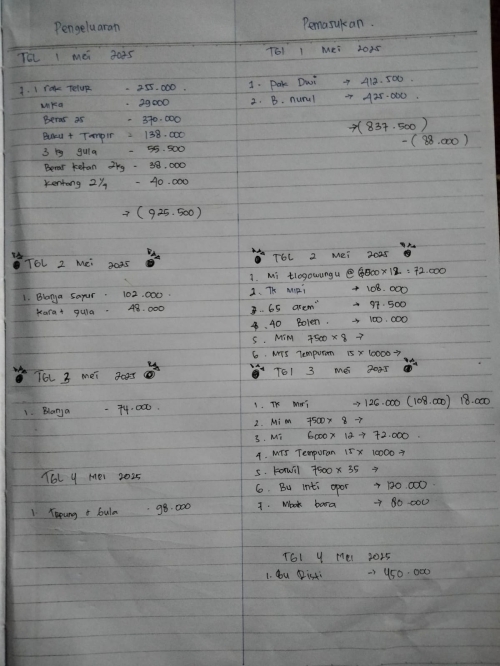 Pengeluaran
TGL 1 Mei 2025
1. 1 rak Telur - 255.000
Mika - 29000
Beras 25 - 370.000
Buku + Tampir = 138.000
3 kg gula - 55.500
Beras ketan 2kg - 38.000
Kentang 2 1/4 - 40.000
→ (925.500)
TGL 2 Mei 2025
1. Blanja sayur - 102.000
Kara + gula - 48.000
TGL 3 Mei 2025
1. Blanja - 74.000
TGL 4 Mei 2025
1. Tepung + Gula - 98.000
Pemasukan.
TGl 1 Mei 2025
1. Pak Dwi → 412.500
2. B. Nurul → 425.000
→ (837.500)
- (88.000)
TGL 2 Mei 2025
1. Mi tlogowungu @ 6000 x 12 = 72.000
2. TK Miri → 108.000
3. 65 arem² → 97.500
4. 40 Bolen → 100.000
5. MIM 7500 x 8 →
6. MTS Tempuran 15 x 10000 →
TGl 3 Mei 2025
1. TK Miri → 126.000 (108.000) 18.000
2. Mi m 7500 x 8 →
3. Mi 6000 x 12 → 72.000
4. MTS Tempuran 15 x 10000 →
5. Korwil 7500 x 35 →
6. Bu Inti opor → 120.000
7. Mbak bara → 80.000
TGl 4 Mei 2025
1. Bu → 450.000